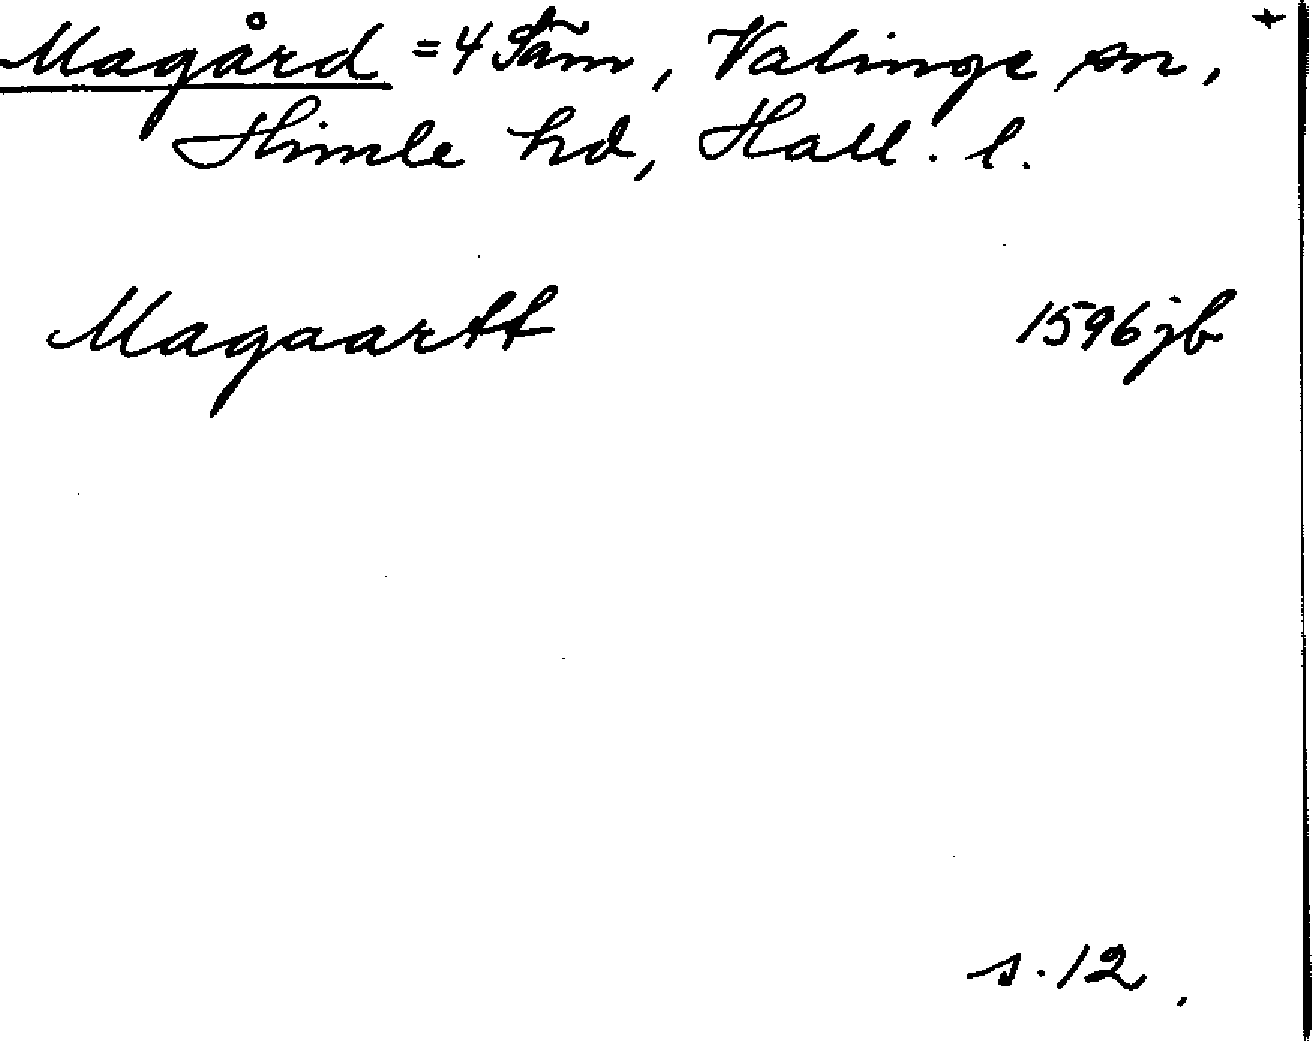 Magård = 4 Säm, Valinge sn, +
Himle hd, Hall. l.
Magaartt 1596 jb
s. 12.